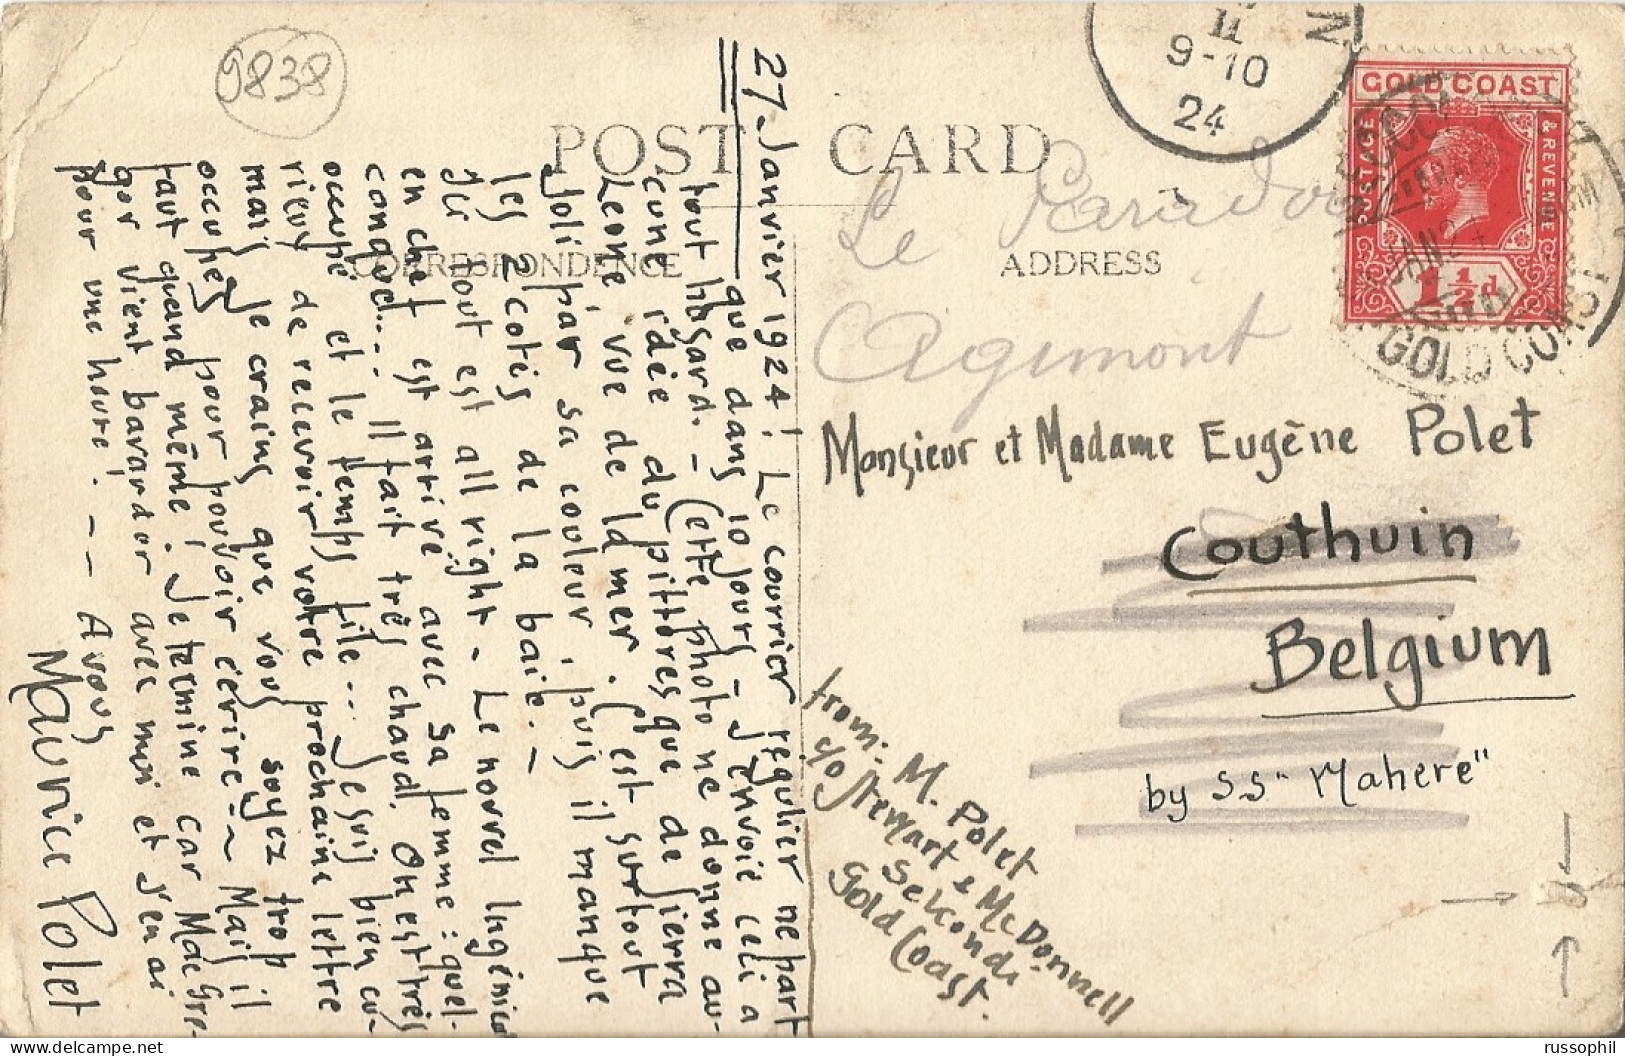 9838
POST CARD
CORRESPONDENCE
ADDRESS
27 Janvier 1924! Le courrier régulier ne part
que dans 10 jours – J'envoie ceci a
tout hasard. – Cette photo ne donne au-
cune idée du pittoresque de Sierra
Leone vue de la mer. C'est surtout
joli par sa couleur, puis il manque
les 2 cotés de la baie. –
Ici tout est all right – Le nouvel Ingénieur
en chef est arrivé avec sa femme: quel-
conque... Il fait très chaud. On est très
occupé et le temps file... Je suis bien cu-
rieux de recevoir votre prochaine lettre
mais je crains que vous soyez trop
occupés pour pouvoir écrire – Mais il
faut quand même! Je termine car Mac Gre-
gor vient bavarder avec moi et j'en ai
pour une heure! – – A vous
Maurice Polet
II
9-10
24
N
GOLD COAST
POSTAGE
& REVENUE
1½d
JAN 24
GOLD COAST
Le Paradou
Agimont
Monsieur et Madame Eugène Polet
Couthuin
Belgium
by S.S "Mahere"
from: M. Polet
c/o Stewart & McDonnell
Sekondi
Gold Coast.
www.russophil.com